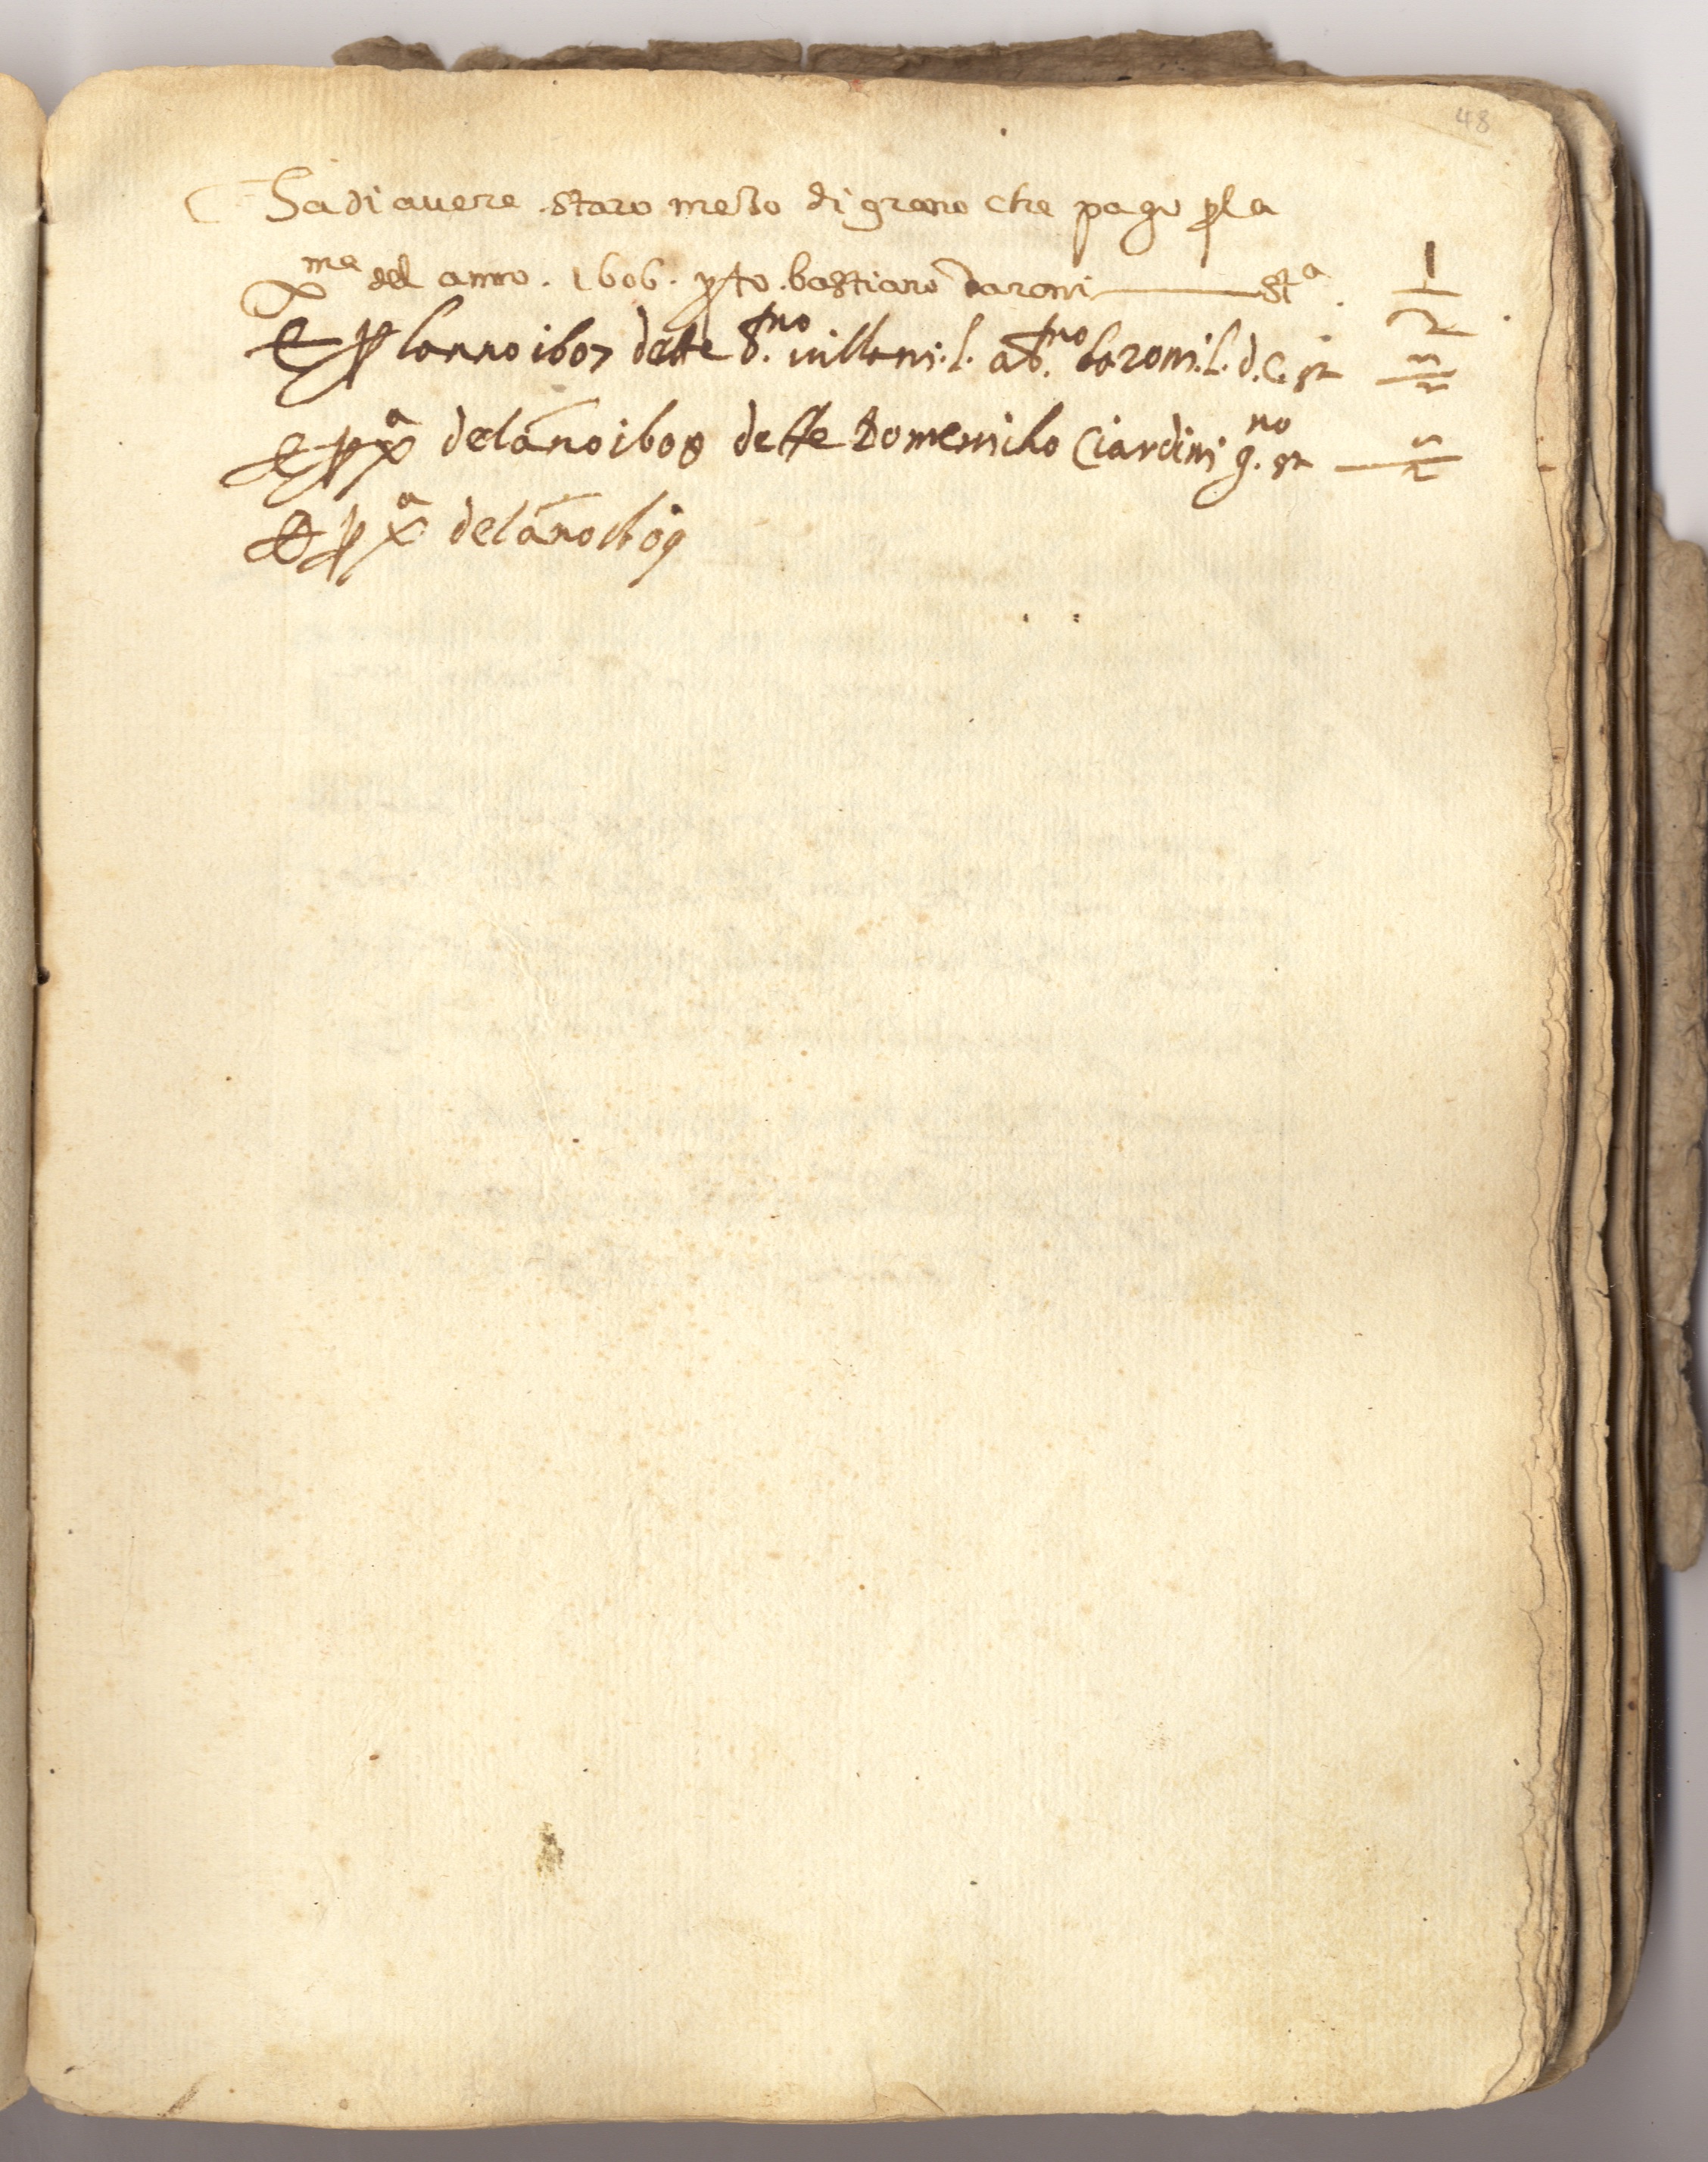 48
Sa di auere staro mezo di grano che pago p la
Xma del anno . 1606 . pto . bastiano baroni — sta . 1/2
E p lanno 1607 dette b.no uillani . l . a b.no baroni . l . d . c . st 1/2
E p Xa del ano 1608 dette Domenicho Ciardini g.no st — 1/2
E p Xa del ano 1609